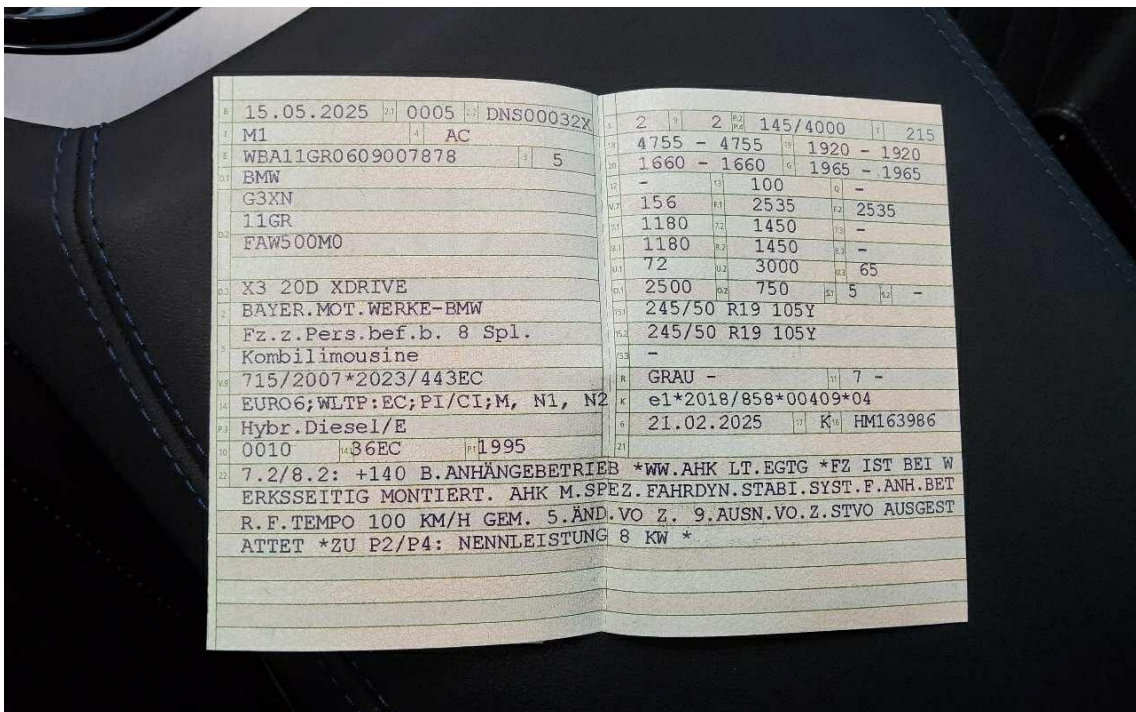 B 15.05.2025 2.1 0005 2.2 DNS00032X
J M1 4 AC
E WBA11GR0609007878 3 5
D.1 BMW
G3XN
D.2 11GR
FAW500M0
D.3 X3 20D XDRIVE
2 BAYER.MOT.WERKE-BMW
Fz.z.Pers.bef.b. 8 Spl.
5 Kombilimousine
V.9 715/2007*2023/443EC
14 EURO6;WLTP:EC;PI/CI;M, N1, N2
P.3 Hybr.Diesel/E
10 0010 14.1 36EC P.1 1995
L 2 9 2 P.2 P.4 145/4000 T 215
18 4755 - 4755 19 1920 - 1920
20 1660 - 1660 G 1965 - 1965
12 - 13 100 Q -
V.7 156 F.1 2535 F.2 2535
7.1 1180 7.2 1450 7.3 -
8.1 1180 8.2 1450 8.3 -
U.1 72 U.2 3000 U.3 65
O.1 2500 O.2 750 S.1 5 S.2 -
15.1 245/50 R19 105Y
15.2 245/50 R19 105Y
15.3 -
R GRAU - 11 7 -
K e1*2018/858*00409*04
6 21.02.2025 17 K 16 HM163986
21
22 7.2/8.2: +140 B.ANHÄNGEBETRIEB *WW.AHK LT.EGTG *FZ IST BEI W
ERKSSEITIG MONTIERT. AHK M.SPEZ.FAHRDYN.STABI.SYST.F.ANH.BET
R.F.TEMPO 100 KM/H GEM. 5.ÄND.VO Z. 9.AUSN.VO.Z.STVO AUSGEST
ATTET *ZU P2/P4: NENNLEISTUNG 8 KW *